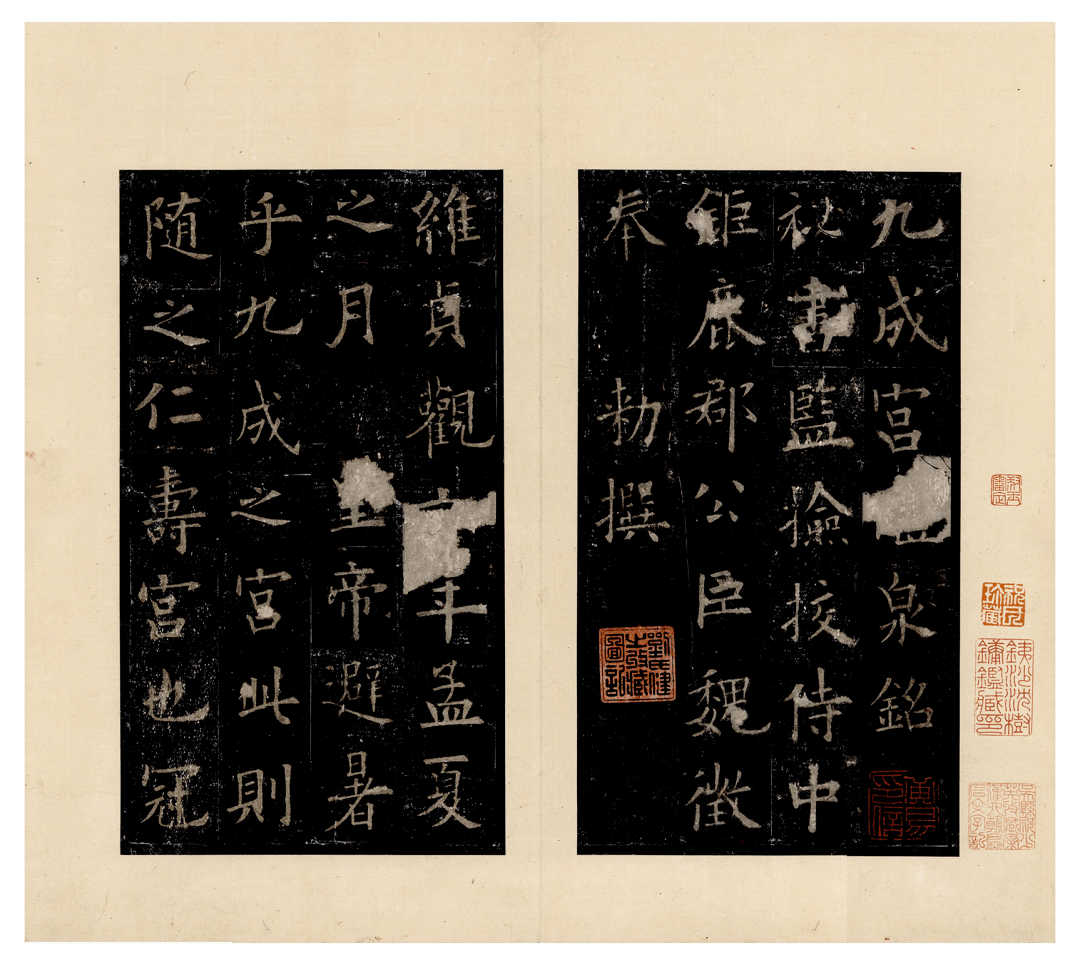 九成宮泉銘
祕書監撿挍侍中
鉅鹿郡公臣魏徵
奉 勑撰
維貞觀六年孟夏
之月 皇帝避暑
乎九成之宮此則
随之仁壽宮也冠